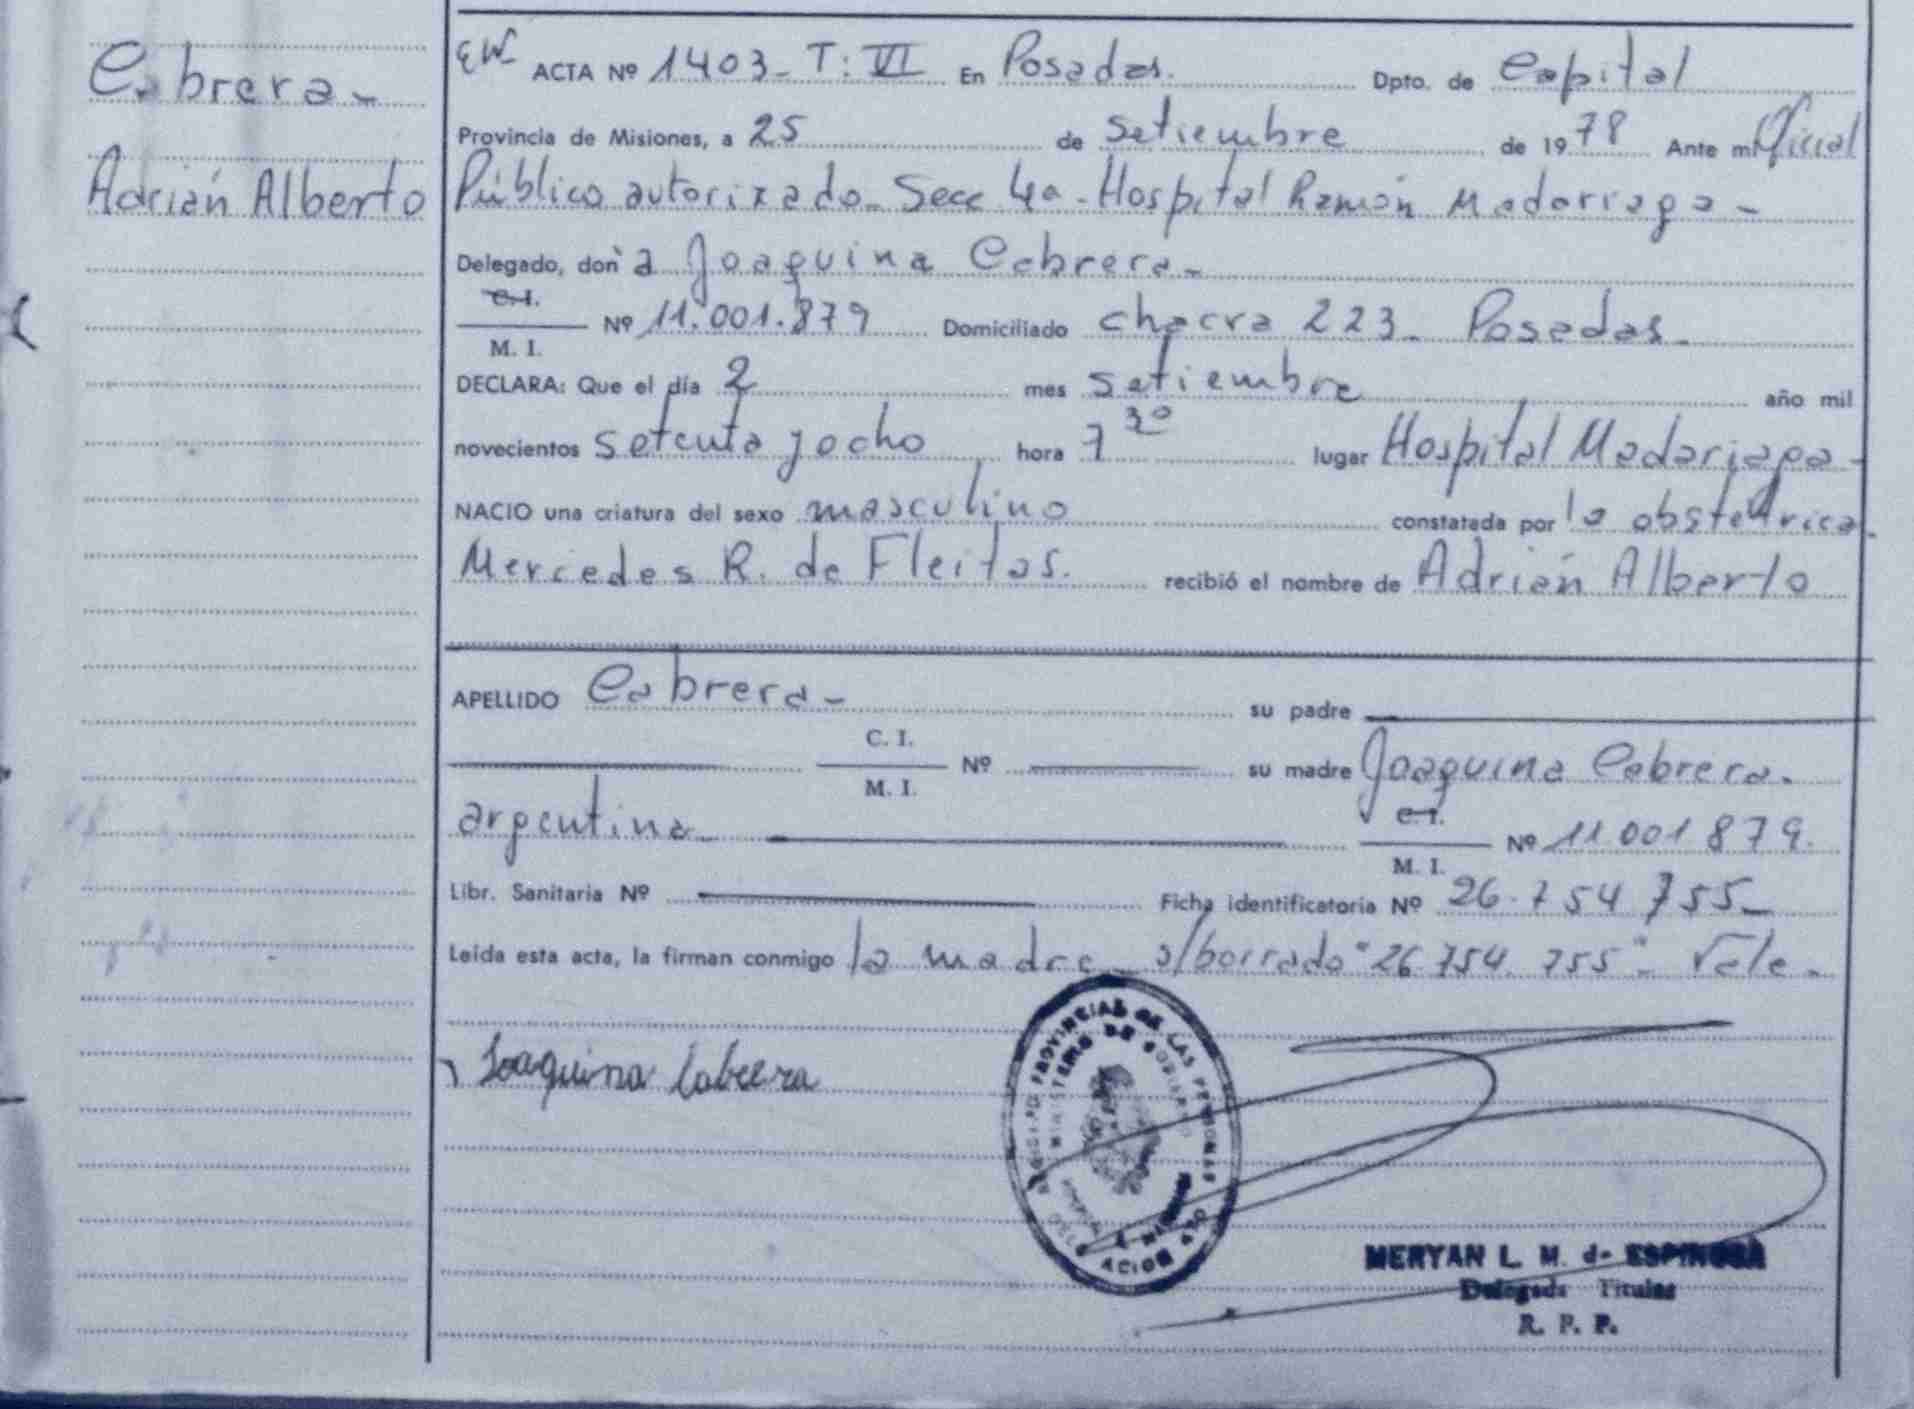 Cabrera-
Adrián Alberto
EW ACTA Nº 1403- T: VI En Posadas. Dpto. de Capital
Provincia de Misiones, a 25 de Setiembre de 1978 Ante mi Oficial
Público autorizado- Secc 4ª - Hospital Ramón Madarriaga-
Delegado, doña Joaquina Cabrera-
C. I.
M. I. Nº 11.001.879 Domiciliado chacra 223- Posadas-
DECLARA: Que el día 2 mes setiembre año mil
novecientos setenta y ocho hora 7 30 lugar Hospital Madariaga-
NACIO una criatura del sexo masculino constatada por la obstetrica
Mercedes R. de Fleitas. recibió el nombre de Adrián Alberto
APELLIDO Cabrera- su padre
C. I.
M. I. Nº su madre Joaquina Cabrera.
argentina- C. I.
M. I. Nº 11.001 879.
Libr. Sanitaria Nº Ficha identificatoria Nº 26.754 755-
Leída esta acta, la firman conmigo la madre- s/borrado "26.754.755"- Vale-
Joaquina Cabrera
PROVINCIAL DE LAS PERSONAS
MINISTERIO DE GOBIERNO
MERYAN L. M. de ESPINOSA
Delegada Titular
R. P. P.